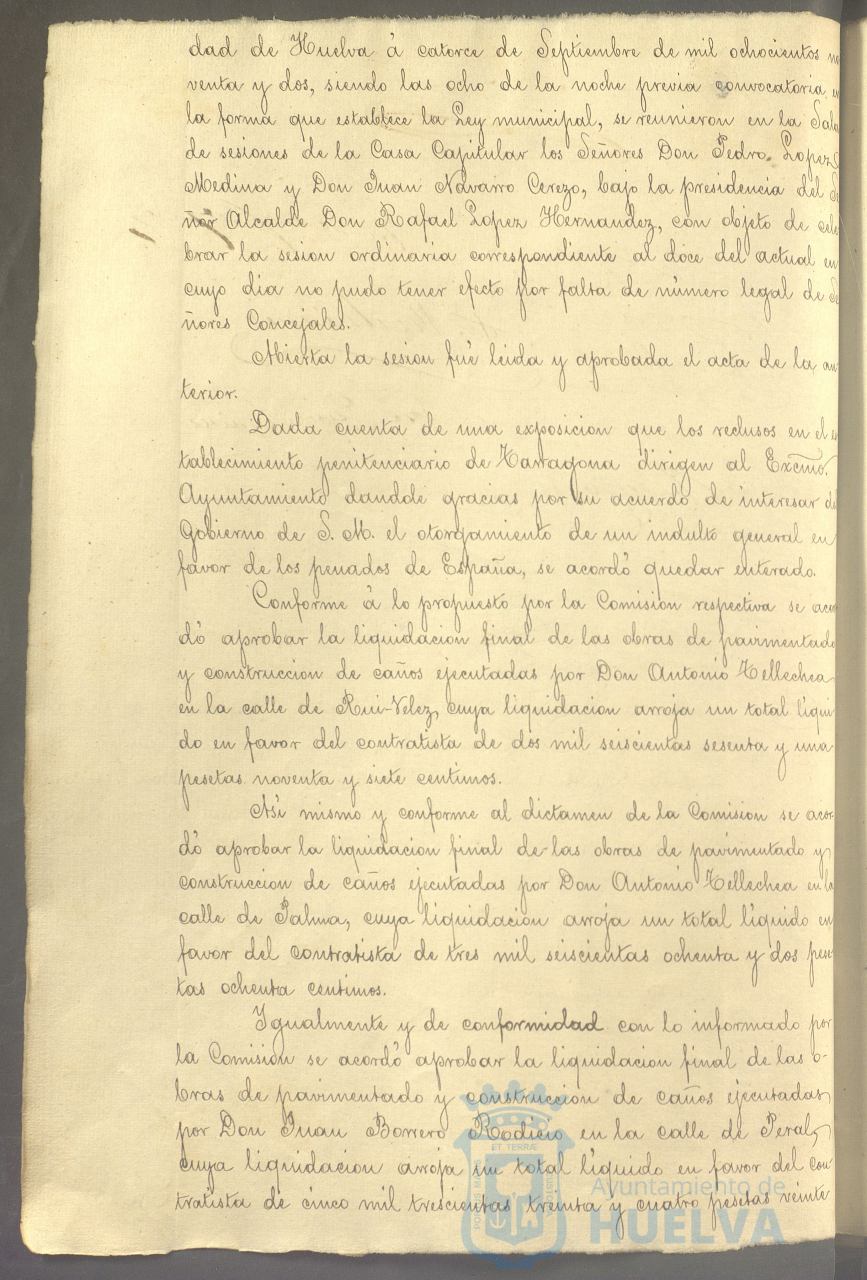 dad de Huelva á catorce de Septiembre de mil ochocientos no
venta y dos, siendo las ocho de la noche previa convocatoria en
la forma que establece la Ley municipal, se reunieron en la Sala
de sesiones de la Casa Capitular los Señores Don Pedro Lopez
Medina y Don Juan Navarro Cerezo, bajo la presidencia del Se
ñor Alcalde Don Rafael Lopez Hernandez, con objeto de cele
brar la sesion ordinaria correspondiente al doce del actual en
cuyo dia no pudo tener efecto por falta de número legal de Se
ñores Concejales.
Abierta la sesion fué leida y aprobada el acta de la an
terior.
Dada cuenta de una exposicion que los reclusos en el es
tablecimiento penitenciario de Tarragona dirigen al Excmo.
Ayuntamiento dandole gracias por su acuerdo de interesar del
Gobierno de S. M. el otorgamiento de un indulto general en
favor de los penados de España, se acordó quedar enterado.
Conforme á lo propuesto por la Comision respectiva se acor
dó aprobar la liquidacion final de las obras de pavimentado
y construccion de caños ejecutadas por Don Antonio Tellechea
en la calle de Rui-Velez, cuya liquidacion arroja un total liqui
do en favor del contratista de dos mil seiscientas sesenta y una
pesetas noventa y siete centimos.
Asi mismo y conforme al dictamen de la Comision se acor-
dó aprobar la liquidacion final de las obras de pavimentado y
construccion de caños ejecutadas por Don Antonio Tellechea en la
calle de Palma, cuya liquidacion arroja un total líquido en
favor del contratista de tres mil seiscientas ochenta y dos pese-
tas ochenta centimos.
Igualmente y de conformidad con lo informado por
la Comision se acordó aprobar la liquidacion final de las o-
bras de pavimentado y construccion de caños ejecutadas
por Don Juan Borrero Rodicio en la calle de Peral,
cuya liquidacion arroja un total líquido en favor del con
tratista de cinco mil trescientas treinta y cuatro pesetas veinte
ET TERRÆ
Ayuntamiento de
HUELVA